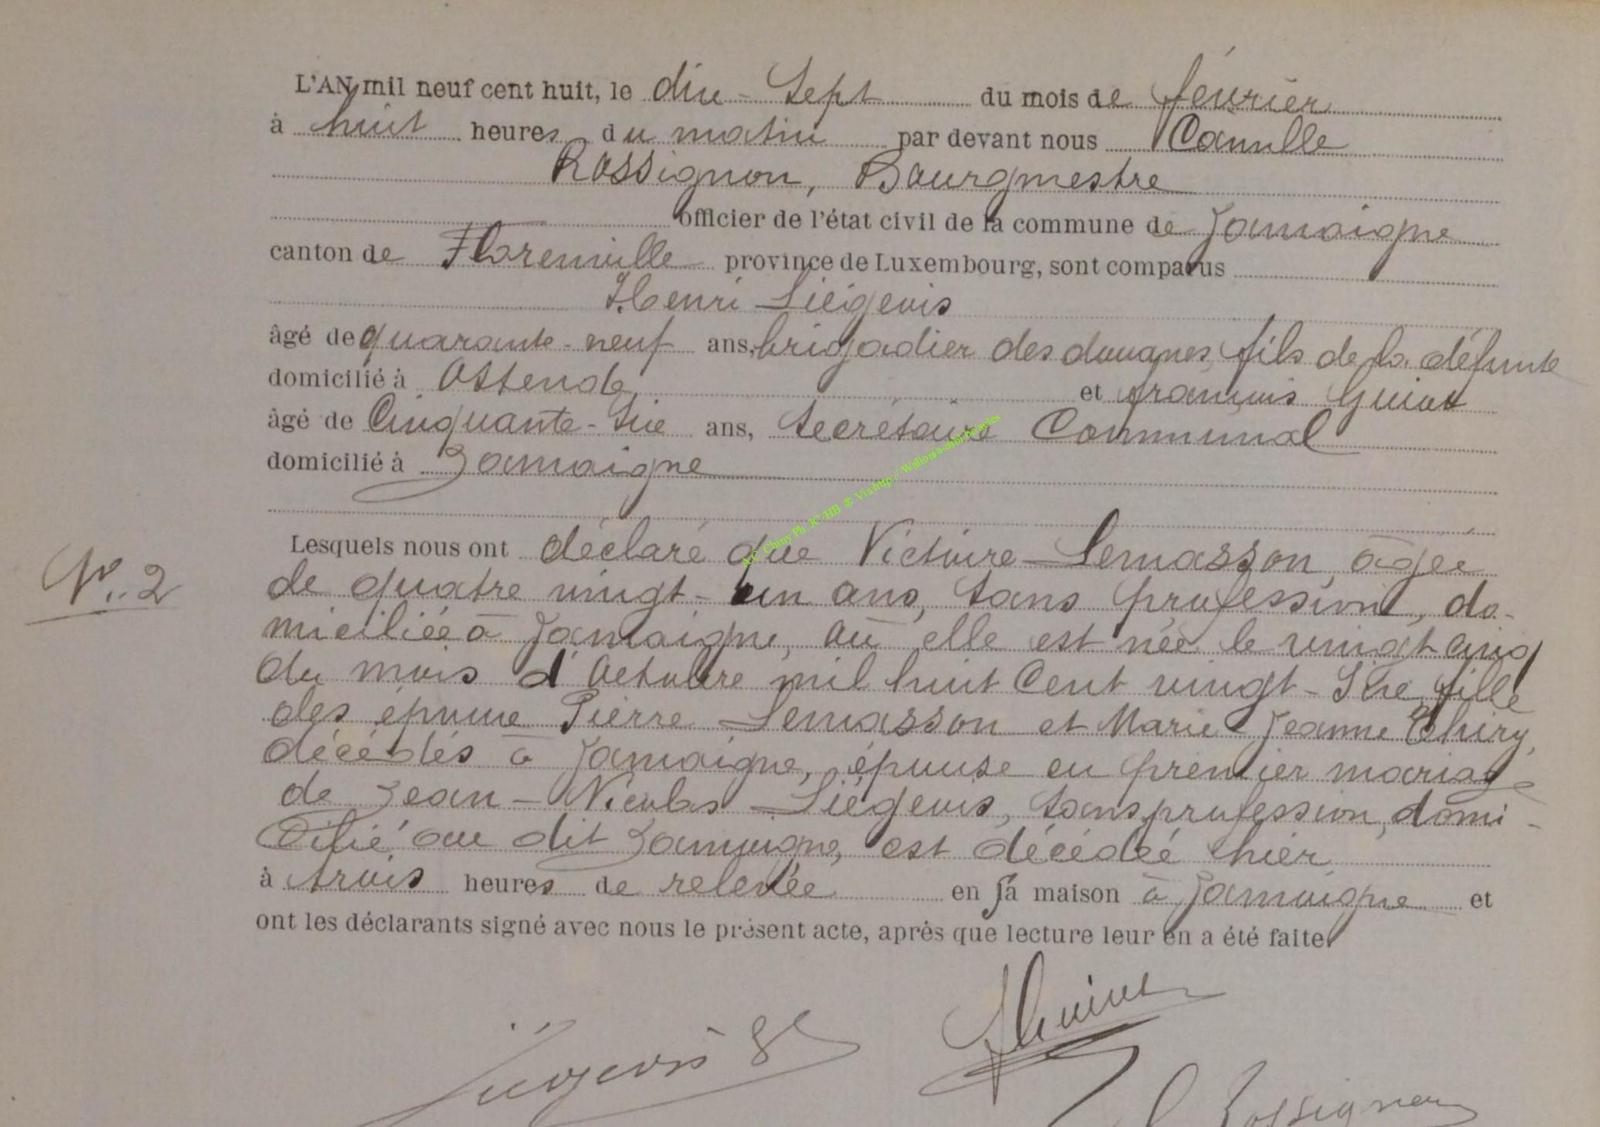 L'AN mil neuf cent huit, le dix-Sept du mois de février
à huit heures du matin par devant nous Camille
Rossignon, Bourgmestre
officier de l'état civil de la commune de Jamoigne
canton de Florenville province de Luxembourg, sont comparus
Henri Liégeois
âgé de quarante-neuf ans, brigadier des douanes, fils de la défunte
domicilié à Ostende et François Guiot
âgé de Cinquante-Six ans, Secrétaire Communal
domicilié à Jamoigne
Lesquels nous ont déclaré que Victoire Lemasson, âgée
N°. 2
de quatre vingt-un ans, sans profession, do-
miciliée à Jamoigne, où elle est née le vingt cinq
du mois d'Octobre mil huit Cent vingt-Six, fille
des époux Pierre Lemasson et Marie Jeanne Thiry,
décédés à Jamoigne, épouse en premier mariage
de Jean-Nicolas Liégeois, sans profession, domi-
cilié au dit Jamoigne, est décédée hier
à trois heures de relevée en sa maison à Jamoigne et
ont les déclarants signé avec nous le présent acte, après que lecture leur en a été faite.
Liégeois
Guiot
Rossignon